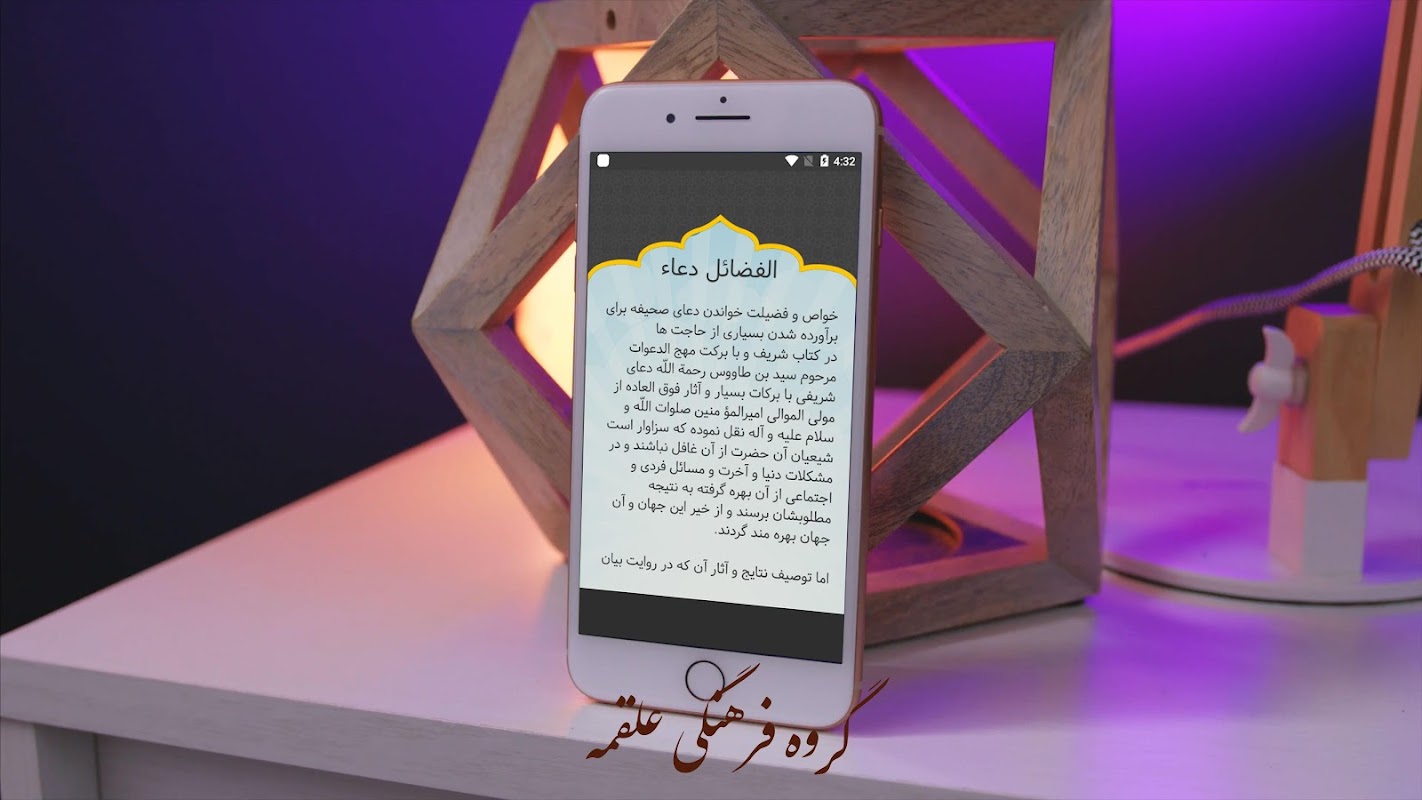 4:32
الفضائل دعاء
خواص و فضیلت خواندن دعای صحیفه برای
برآورده شدن بسیاری از حاجت ها
در کتاب شریف و با برکت مهج الدعوات
مرحوم سید بن طاووس رحمة اللّه دعای
شریفی با برکات بسیار و آثار فوق العاده از
مولی الموالی امیرالمؤ منین صلوات اللّه و
سلام علیه و آله نقل نموده که سزاوار است
شیعیان آن حضرت از آن غافل نباشند و در
مشکلات دنیا و آخرت و مسائل فردی و
اجتماعی از آن بهره گرفته به نتیجه
مطلوبشان برسند و از خیر این جهان و آن
جهان بهره مند گردند.
اما توصیف نتایج و آثار آن که در روایت بیان
گروه فرهنگی علقمه